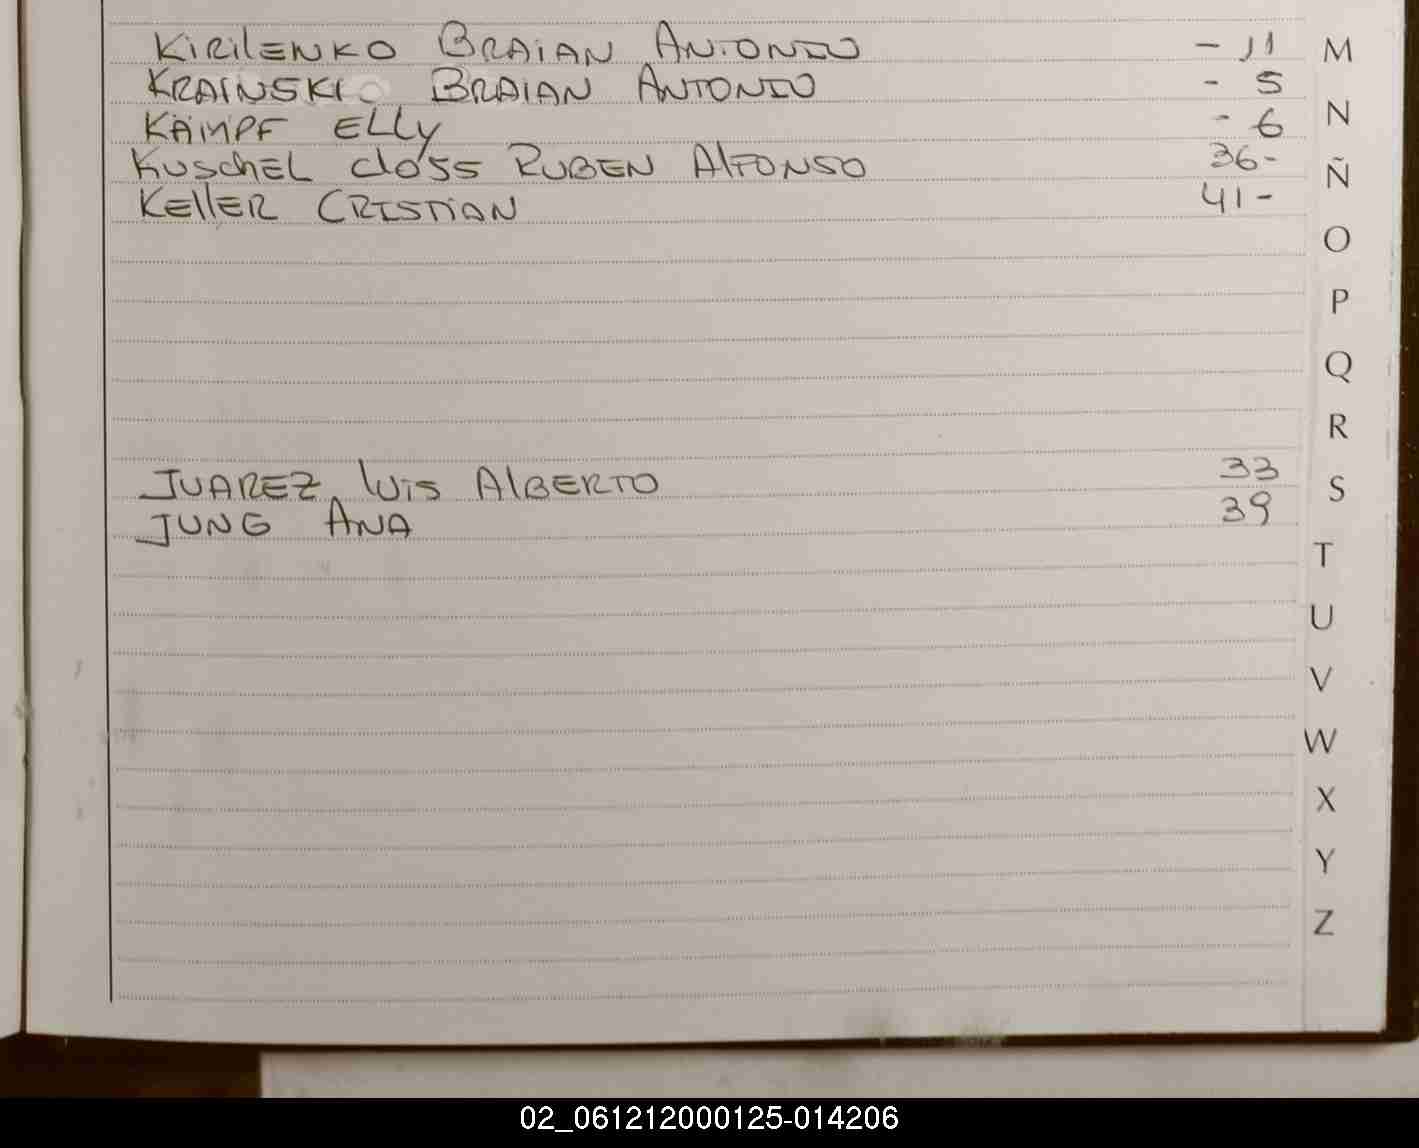 KIRILENKO BRAIAN ANTONIO - 11
KRAINSKI BRAIAN ANTONIO - 5
KÄMPF ELLY - 6
KUSCHEL CLOSS RUBEN ALFONSO 36-
KELLER CRISTIAN 41-
JUAREZ, LUIS ALBERTO 33
JUNG ANA 39
M
N
Ñ
O
P
Q
R
S
T
U
V
W
X
Y
Z
02_061212000125-014206